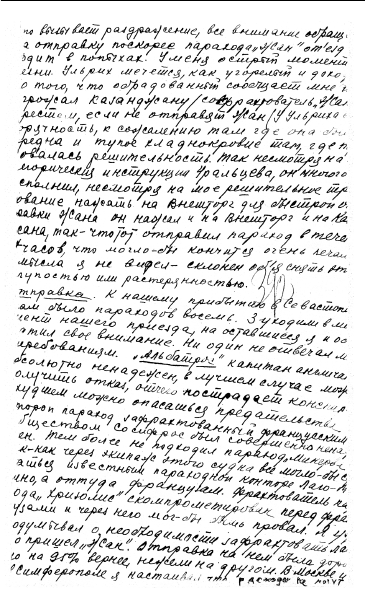 но вызывает раздражение, все внимание обращ
а отправку поскорее парохода "Жан" от'езд
одит в попыхах. У меня острый момент
ени. Ульрих мечется, как угорелый и дохо
о того, что обрадованный сообщает мне
грожал Каланджану / софрахтователь "Жан
рестом, если не отправят "Жан / у Ульриха
рятность, к сожалению там где она бы
редна и тупое хладнокровие там, где т
овалась решительность. Так несмотря на
горические инструкции Уральцева, он многого
сполнил, несмотря на мое решительное тр
ование нажать на Внешторг для быстрой о
равки Жана он нажал и на Внешторг и на Ка
сана, так-что тот отправил пароход в тече
часов, что могло-бы кончится очень печал
мысла я не видел - склонен объяснять
упостью или растерянностью.
тправка. К нашему прибытию в Севастоп
ам было пароходов восемь. 3 уходили в м
ент нашего приезда, на оставшиеся я и об
атил свое внимание. Ни один не отвечал м
ребованиям. "Альбатрос" капитан
бсолютно ненадежен, в лучшем случае мог
олучить отказ, отчего пострадает конспи
худшем можно опасаться предательства
торой пароход зафрахтованный французским
бществом Сосифрос был совершенно нена
ен. Тем более не подходил пароход
к-как через экипаж этого судна все могло бы
аться известным пароходной конторе
но, а оттуда французам. Фрахтователем
ода скомпрометирован перед фра
узами и через него мог-бы быть провал. Я у
одумывал о необходимости зафрахтовать
о пришел "Жан". Отправка на нем была
о на 95% вернее, нежели на другом. В Москве и
Симферополе я настаивал что пароходы не могут